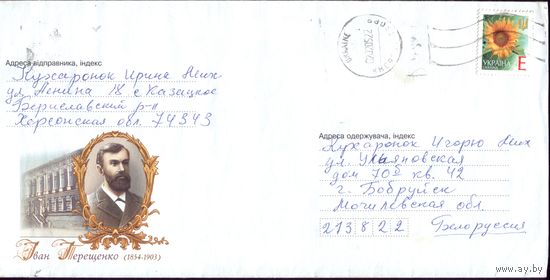 Адреса відправника, індекс
Кухаронок Ирина Мих
ул Ленина 18 с Казацкое
Бериславский р-н
Херсонская обл. 74343
UKRAINE
УКРАЇНА
E
Адреса одержувача, індекс
Кухаронок Игорю Мих
ул. Ульяновская
дом 70 кв. 42
г. Бобруйск
Могилевская обл.
213822
Белоруссия
Іван Терещенко (1854-1903)
www.ay.by